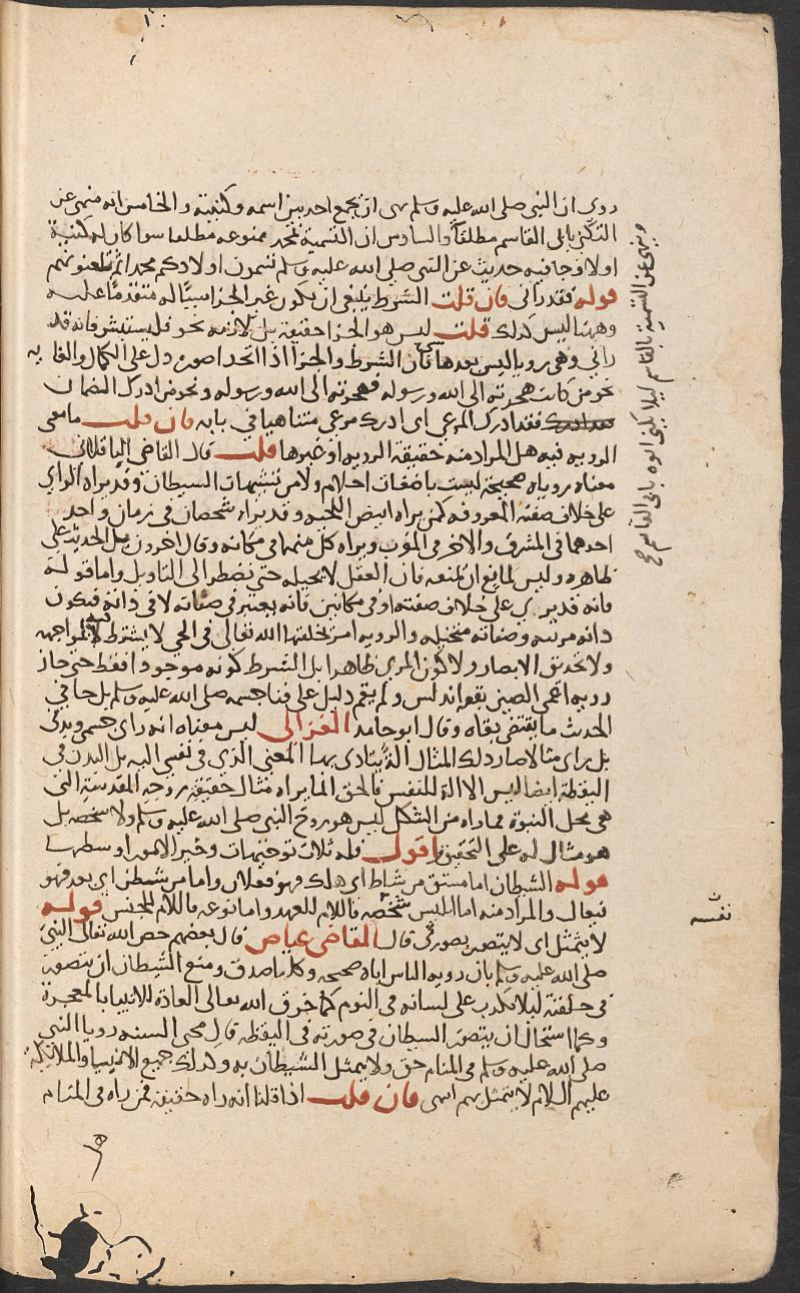 روي ان النبي صلى الله عليه وسلم نهى ان يجمع احد بين اسمه وكنيته والخامس انه منهي عن
التكني بابي القاسم مطلقا والسادس ان التسمية بمحمد ممنوعه مطلقا سوا كان له كنية
اولا وجا فيه حديث عن النبي صلى الله عليه وسلم تسمون اولادكم محمدا ثم تلعنونهم
قوله فقد راني فان قلت الشرط ينبغي ان يكون غير الجزا سببا له متقدما عليه
وههنا ليس كذلك قلت ليس هو الجزا حقيقة بل لازمه نحو فليستبشر فانه قد
راني وهي رويا ليس بعدها شي فان الشرط والجزا اذا اتحدا صورة دل على الكمال والغايه
نحو من كانت هجرته الى الله ورسوله فهجرته الى الله ورسوله ونحو من ادرك الضمان
فقد ادرك المرعى اي ادرك مرعى متناهيا في بابه فان قلت ما معنى
الرويه فيه هل المراد منه حقيقة الرويه او غيرها قلت قال القاضي الباقلاني
معناه روياه صحيحة ليست باضغاث احلام ولا من تشبيهات الشيطان وقد يراه الراي
على خلاف صفته المعروفه كمن يراه ابيض اللحيه وقد يراه شخصان في زمان واحد
احدهما في المشرق والاخر في المغرب ويراه كل منهما في مكانه وقال اخرون بل الحديث على
ظاهره وليس لمانع ان يمنعه فان العقل لا يحيله حتى يضطر الى التاويل واما قوله
فانه قد يرى على خلاف صفته او في مكانين فانه يعتبر في صفاته لا في ذاته فيكون
ذاته مرئية وصفاته متخيله والرويه امر يخلقها الله تعالى في الحي لا يشترط المواجهه
ولا تحديق الابصار ولا كون المري ظاهرا بل الشرط كونه موجودا فقط حتى جاز
روية اعمى الصين بقة اندلس ولم يقم دليل على فنا جسمه صلى الله عليه وسلم بل جا في
الحديث ما يقتضي بقاه وقال ابو حامد الغزالي ليس معناه انه راى جسمي وبدني
بل راى مثالا صار ذلك المثال الة يتادى بها المعنى الذي في نفسي اليه بل البدن في
اليقظة ايضا ليس الا الة للنفس فالحق ان ما يراه مثال حقيقة روحه المقدسة التي
هي محل النبوة فما راه من الشكل ليس هو روح النبي صلى الله عليه وسلم ولا شخصه بل
هو مثال له على التحقيق اقول فله ثلاث توجيهات وخير الامور اوسطها
قوله الشيطان اما مشتق من شاط اي هلك فهو فعلان واما من شطن اي بعد فهو
فيعال والمراد منه اما ابليس شخصه فاللام للعهد واما نوعه فاللام للجنس قوله
لا يتمثل اي لا يتصور بصورتي قال القاضي عياض قال بعضهم خص الله تعالى النبي
صلى الله عليه وسلم بان روية الناس اياه صحيحه وكلها صدق ومنع الشيطان ان يتصور
في خلقته ليلا يكذب على لسانه في النوم كما خرق الله تعالى العادة للانبيا بالمعجزة
وكما استحال ان يتصور الشيطان في صورته في اليقظه قال محيي السنه رويا النبي
صلى الله عليه وسلم في المنام حق ولا يتمثل الشيطان به وكذلك جميع الانبيا والملائكة
عليهم السلام لا يتمثل بهم انتهى فان قلت اذا قلنا انه راه حقيقة فمن راه في المنام
ونهي عن التسمية بالقاسم ليلا يكنى ابوه بابي القاسم صح
نفسه